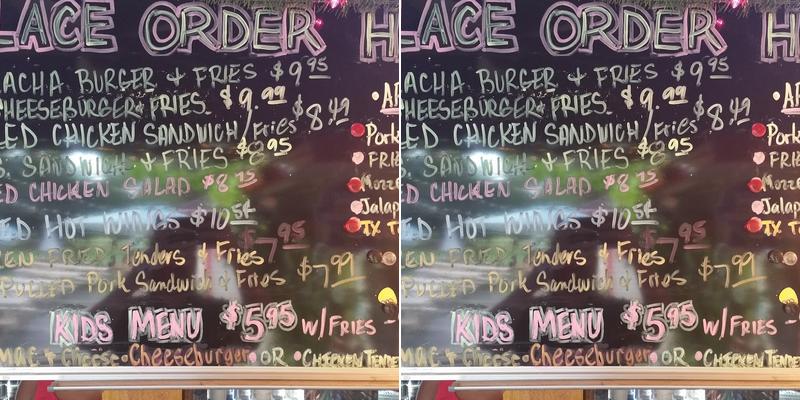 LACE ORDER H
ACHA BURGER & FRIES $9.95
CHEESEBURGER & FRIES $9.99
ED CHICKEN SANDWICH/Fries $8.49
SANDWICH & FRIES $8.95
ED CHICKEN SALAD $8.75
ED HOT WINGS $10.54
KEN FRIED Tenders & Fries $7.95
PULLED Pork Sandwich & Fries $7.99
KIDS MENU $5.95 W/FRIES -
MAC & Cheese • Cheeseburger • OR • CHICKEN TENDE
• AP
Pork
FRIE
Mozze
Jalap
TX TO
LACE ORDER H
ACHA BURGER & FRIES $9.95
HEESEBURGER & FRIES $9.99
ED CHICKEN SANDWICH/Fries $8.49
S. SANDWICH & FRIES $8.95
ED CHICKEN SALAD $8.75
ED HOT WINGS $10.54
EN FRIED Tenders & Fries $7.95
PULLED Pork Sandwich & Fries $7.99
KIDS MENU $5.95 W/FRIES -
MAC & Cheese • Cheeseburger • OR • CHICKEN TENDE
• AP
Pork
FRIE
Mozze
Jalap
TX TO